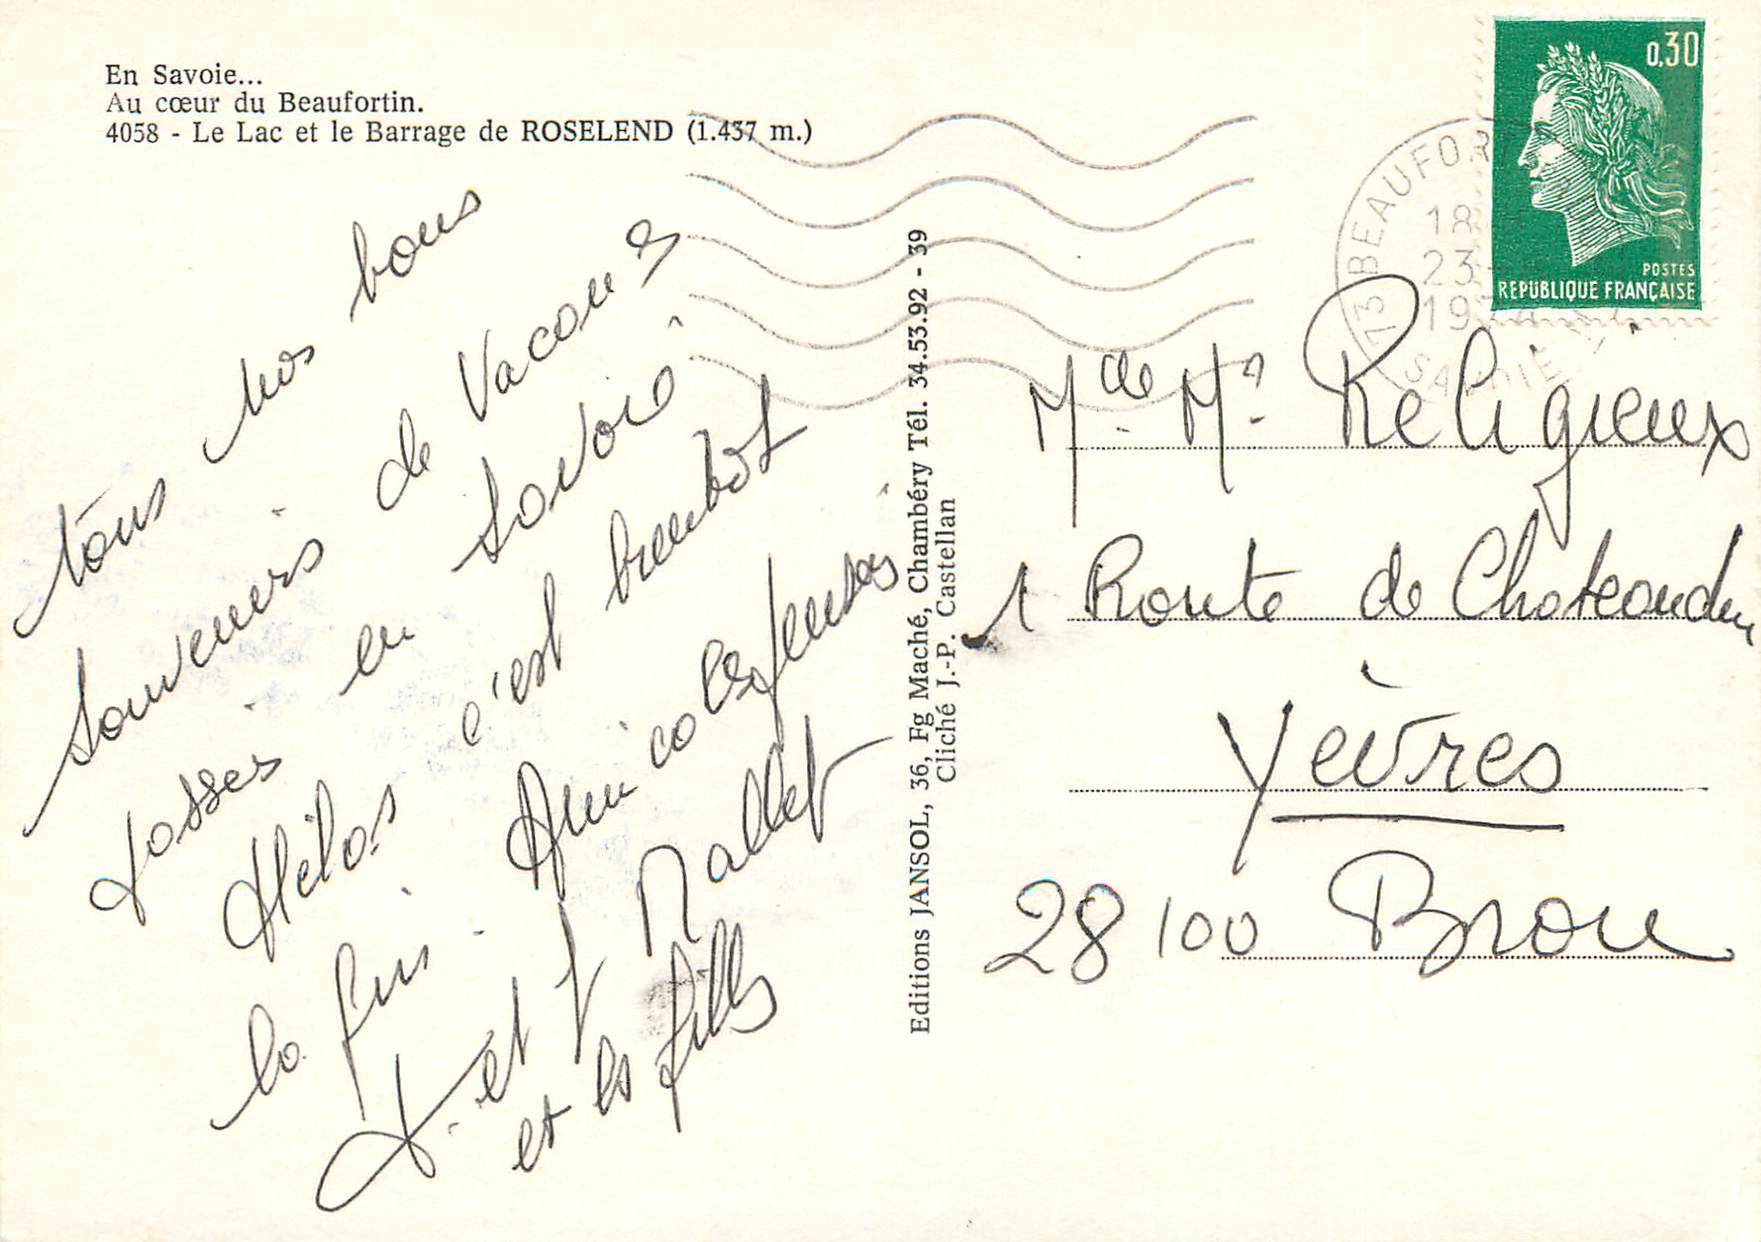 En Savoie...
Au cœur du Beaufortin.
4058 - Le Lac et le Barrage de ROSELEND (1.437 m.)
tous nos bons
souvenirs de Vacances
passées en Savoie
Hélas c'est bientôt
la fin. Amicales pensées
et J Mallet
et les filles
Editions JANSOL, 36, Fg Maché, Chambéry Tél. 34.53.92 - 39
Cliché J.-P. Castellan
0,30
POSTES
REPUBLIQUE FRANÇAISE
73 BEAUFOR
18
23
19
SAVOIE
Mde Mr Religieux
1 Route de Chateaudun
Yèvres
28100 Brou